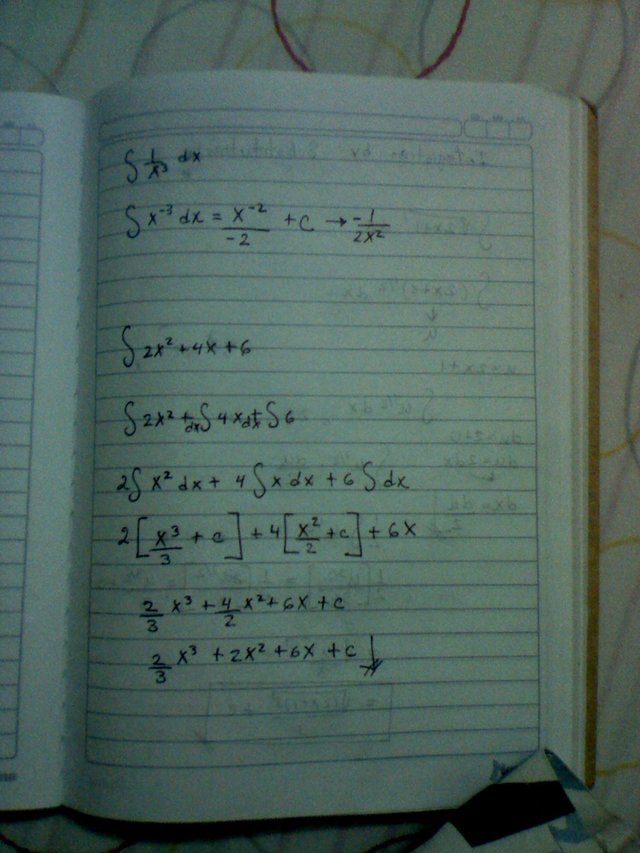 ∫ 1/x³ dx
∫ x⁻³ dx = x⁻²/-2 + c → -1/2x²
∫ 2x² + 4x + 6
∫ 2x² dx + ∫ 4x dx + ∫ 6
2∫ x² dx + 4∫ x dx + 6 ∫ dx
2[x³/3 + c] + 4[x²/2 + c] + 6x
2/3 x³ + 4/2 x² + 6x + c
2/3 x³ + 2x² + 6x + c